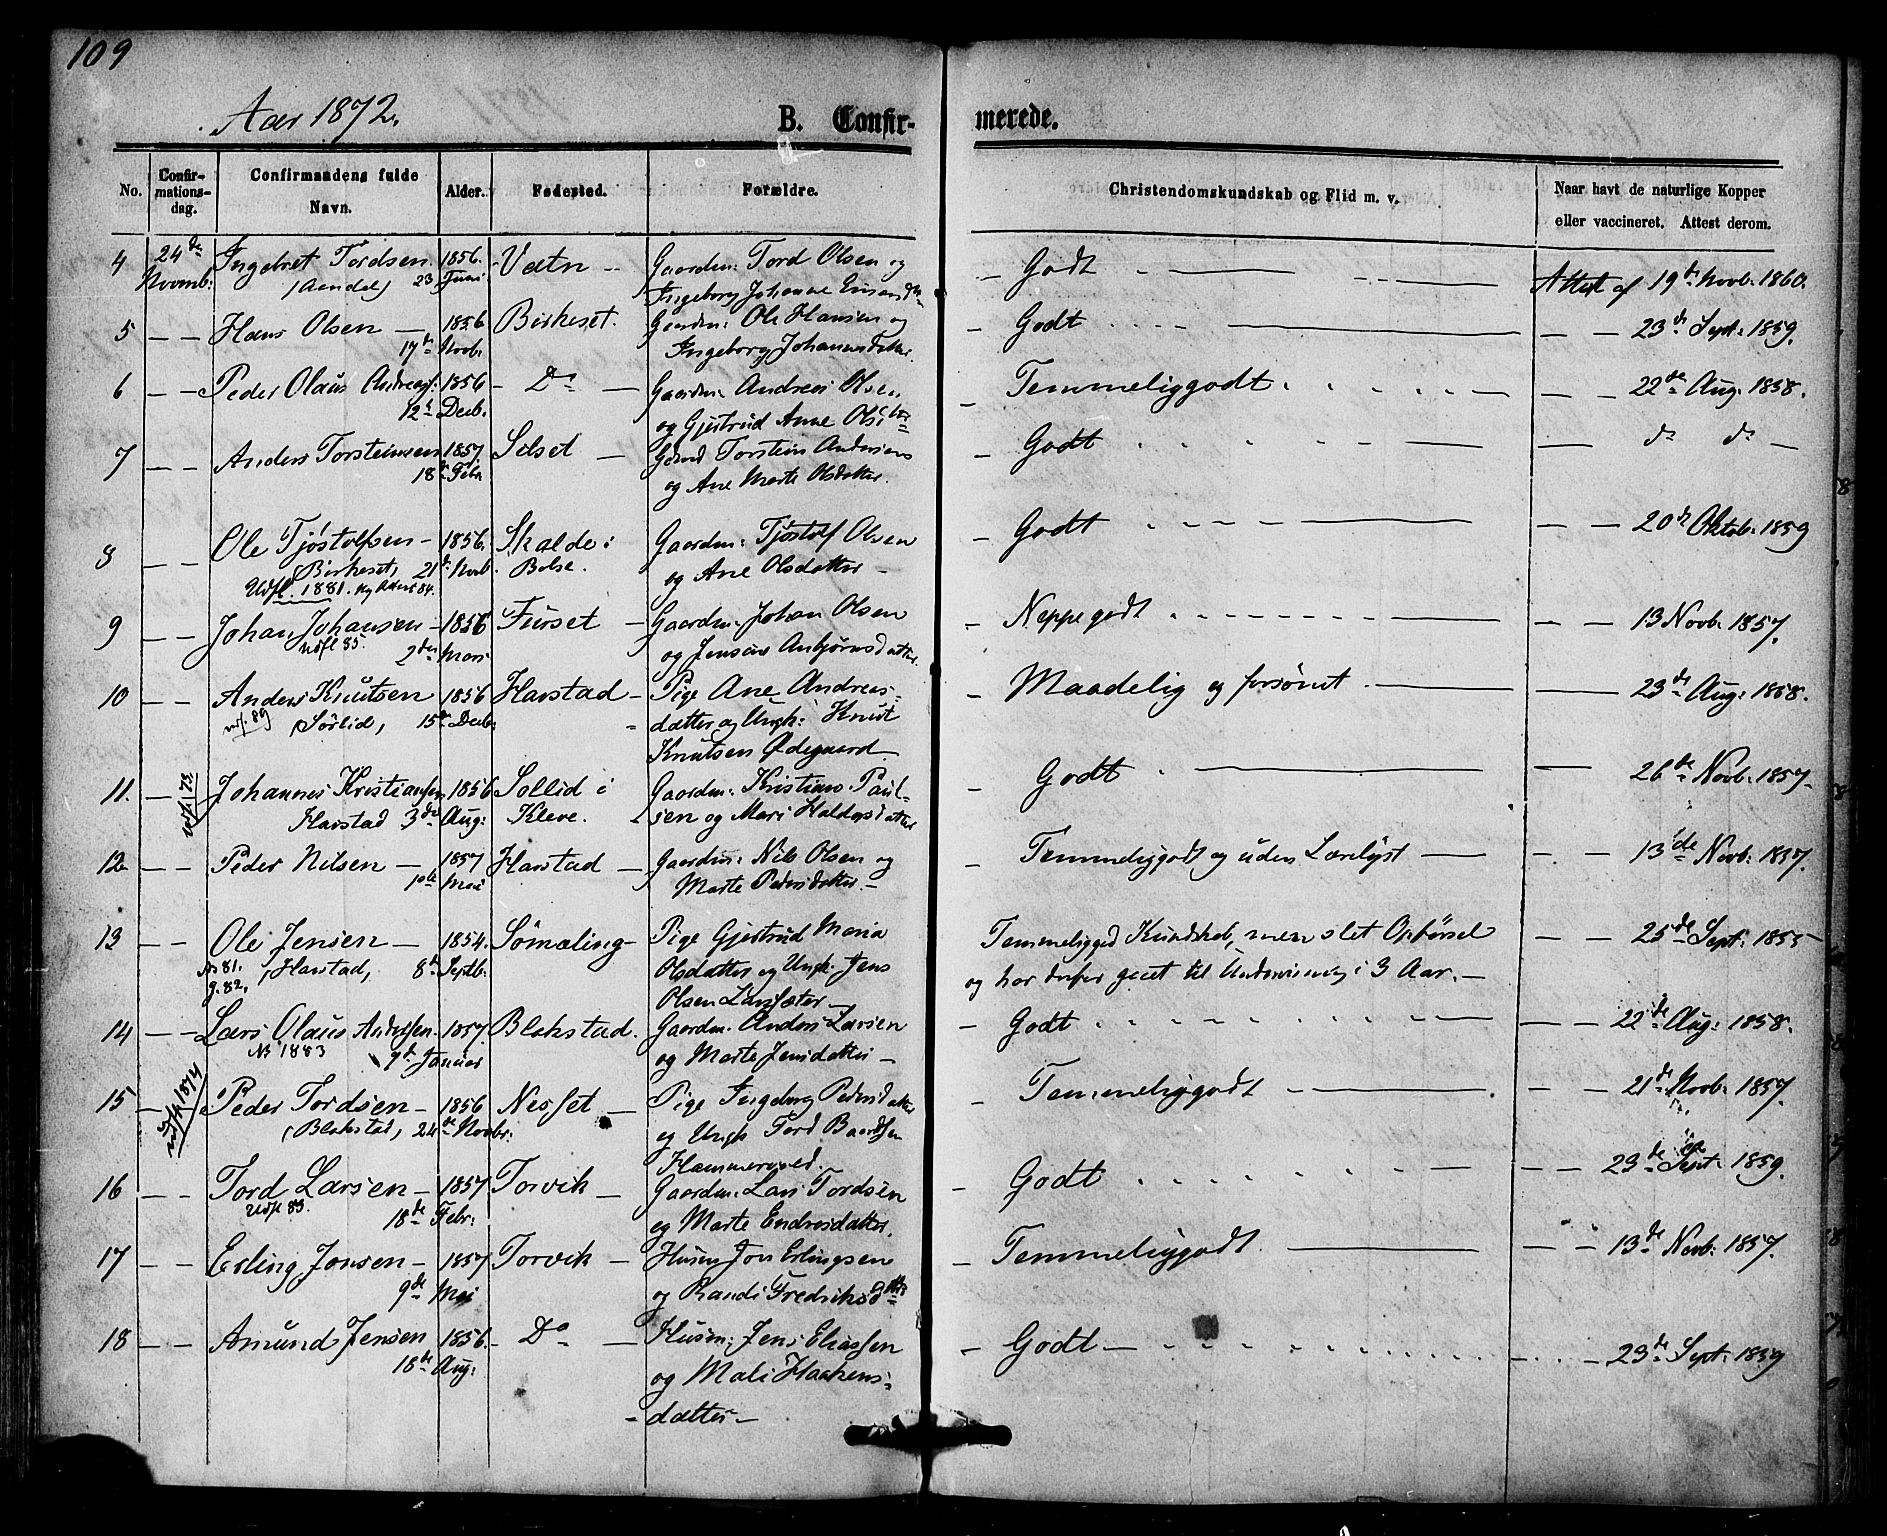 109
Aar 1872.
B. Confir- merede.
No.
Confir-
mations-
dag.
Confirmandens fulde
Navn.
Alder.
Fødested.
Forældre.
Christendomskundskab og Flid m. v.
Naar havt de naturlige Kopper
eller vaccineret. Attest derom.
4 24de Ingebret Tordsen 1856. Vatn Gaardm: Tord Olsen og - Godt Attest af 19de Novb. 1860.
Novmb: (Aandal) 23 Juni Ingeborg Johanne
5 Hans Olsen 1856 Birkeset. Gaardm: Ole Hansen og - Godt 23de Sept: 1859.
17de Novb. Ingeborg
6 Peder Olaus 1856 - Do Gaardm: Andreas Olsen - Temmeliggodt 22de Aug. 1858.
12te Decb. og Gjertrud Anne
7 Anders Torsteinsen 1857 Silset Torstein Andersen Godt do do
18de Febr og Ane Marte Olsdatter.
8 Ole Tjøstolfsen 1856. Skalde i Gaardm: Tjøstolf Olsen - Godt 20de Oktob. 1859
(Birkeset, 21de Novb. Bolse. og Ane Olsdatter
Udfl. 1881.
9 Johan Johansen 1856 Furset Gaardm: Johan Olsen - Neppe godt 13 Novb. 1857.
udfl 85. 2den Mars og
10 Anders Knutsen 1856 Harstad Pige Ane Andreas- - Maadelig og forsømt 23de Aug: 1858.
89 (Sørlid, 15de Decb. datter og Ungk: Knut
Knutsen Ødegaard
11. udfl. 73 Johannes Kristiansen 1856 Sollid i Gaardm: Kristian Paul- Godt 26de Novb. 1857.
Harstad 3de Aug: Kleve. sen og Mari Haldorsdatter
12 Peder Nilsen 1857 Harstad Gaardm: Nils Olsen og - Temmeliggodt og uden Lærelyst 13de Novb: 1857.
Mai Marte Pedersdatter.
13 Ole Jensen 1854. Sømæling Pige Gjertrud Maria Temmeliggod Kundskab, men slet Opførsel 25de Sept: 1855
(Harstad, 8de Septb. Olsdatter og Ungk. Jens og har derfor gaaet til Underviisning i 3 Aar.
Olsen
14 Lars Olaus Andersen 1857. Blakstad. Gaardm. Anders Larsen - Godt 22de Aug: 1858.
1883 Januar og Marte Jensdatter
15 udfl 1874 Peder Tordsen 1856 Nesset Pige Ingeborg Pedersdatter - Temmeliggodt 21de Novb: 1857.
(Blakstad, 24de Novbr: og Ungk Tord Baardsen
Hammervold.
16 Tord Larsen 1857 Torvik Gaardm: Lars Tordsen - Godt 23de Sept: 1859.
Udfl 83. 18de Febr: og Marte Endresdatter.
17 Erling Jonsen 1857 Torvik Husm Jon Erlingsen - Temmeliggodt. 13de Novb: 1857.
9de Mai og Randi Fredriksd
18 Amund Jensen 1856. - Do Husm: Jens Eliassen - Godt 23de Sept: 1859
18de Aug: og Mali Haakens-
datter